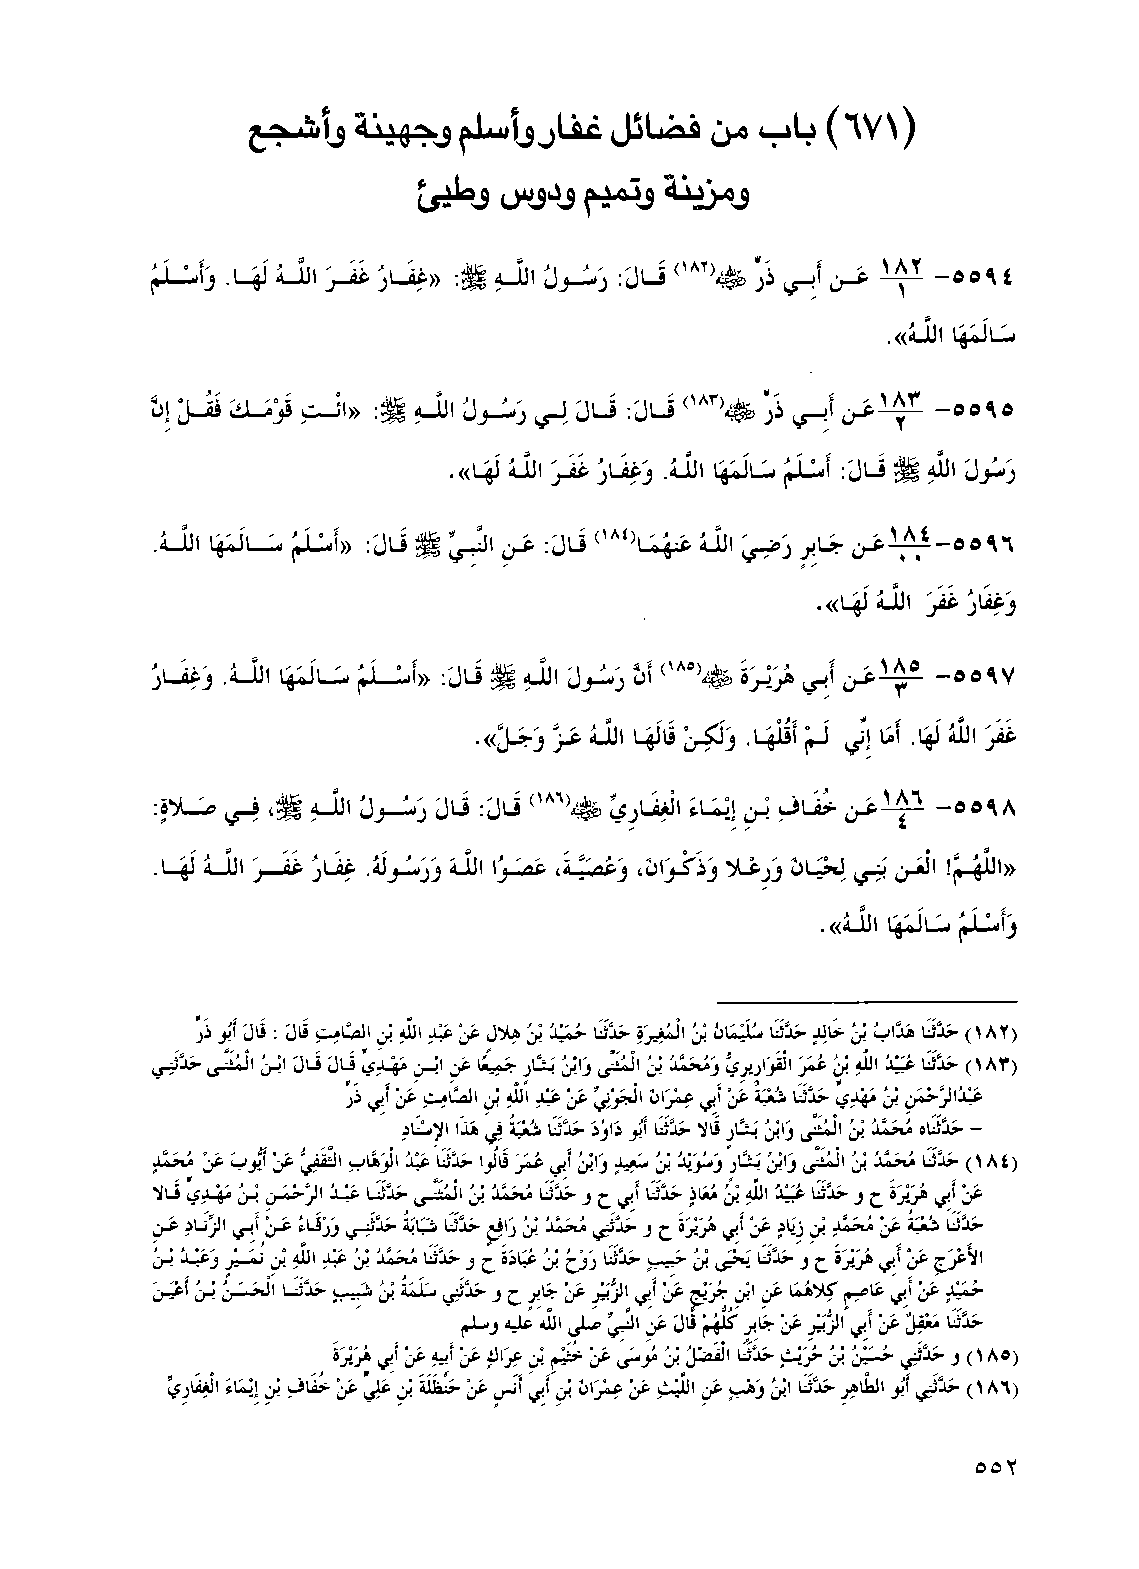 (٦٧١) باب من فضائل غفار وأسلم وجهينة وأشجع
ومزينة وتميم ودوس وطيئ
٥٥٩٤- ١٨٢/١ عَن أَبِي ذَرٍّ ﵁(١٨٢) قَالَ: رَسُولُ اللَّهِ ﷺ: «غِفَارُ غَفَرَ اللَّهُ لَهَا. وَأَسْلَمُ
سَالَمَهَا اللَّهُ».
٥٥٩٥- ١٨٣/٢ عَن أَبِي ذَرٍّ ﵁(١٨٣) قَالَ: قَالَ لِي رَسُولُ اللَّهِ ﷺ: «ائْتِ قَوْمَكَ فَقُلْ إِنَّ
رَسُولَ اللَّهِ ﷺ قَالَ: أَسْلَمُ سَالَمَهَا اللَّهُ. وَغِفَارُ غَفَرَ اللَّهُ لَهَا».
٥٥٩٦- ١٨٤/٠٠ عَن جَابِرٍ رَضِيَ اللَّهُ عَنهُمَا(١٨٤) قَالَ: عَنِ النَّبِيِّ ﷺ قَالَ: «أَسْلَمُ سَالَمَهَا اللَّهُ.
وَغِفَارُ غَفَرَ اللَّهُ لَهَا».
٥٥٩٧- ١٨٥/٣ عَن أَبِي هُرَيْرَةَ ﵁(١٨٥) أَنَّ رَسُولَ اللَّهِ ﷺ قَالَ: «أَسْلَمُ سَالَمَهَا اللَّهُ. وَغِفَارُ
غَفَرَ اللَّهُ لَهَا. أَمَا إِنِّي لَمْ أَقُلْهَا. وَلَكِنْ قَالَهَا اللَّهُ عَزَّ وَجَلَّ».
٥٥٩٨- ١٨٦/٤ عَن خُفَافِ بْنِ إِيْمَاءَ الْغِفَارِيِّ ﵁(١٨٦) قَالَ: قَالَ رَسُولُ اللَّهِ ﷺ، فِي صَلاةٍ:
«اللَّهُمَّ! الْعَن بَنِي لِحْيَانَ وَرِعْلا وَذَكْوَانَ، وَعُصَيَّةَ، عَصَوُا اللَّهَ وَرَسُولَهُ. غِفَارُ غَفَرَ اللَّهُ لَهَا.
وَأَسْلَمُ سَالَمَهَا اللَّهُ».
(١٨٢) حَدَّثَنَا هَدَّابُ بْنُ خَالِدٍ حَدَّثَنَا سُلَيْمَانُ بْنُ الْمُغِيرَةِ حَدَّثَنَا حُمَيْدُ بْنُ هِلالٍ عَنْ عَبْدِ اللَّهِ بْنِ الصَّامِتِ قَالَ : قَالَ أَبُو ذَرٍّ
(١٨٣) حَدَّثَنَا عُبَيْدُ اللَّهِ بْنُ عُمَرَ الْقَوَارِيرِيُّ وَمُحَمَّدُ بْنُ الْمُثَنَّى وَابْنُ بَشَّارٍ جَمِيعًا عَنِ ابْنِ مَهْدِيٍّ قَالَ قَالَ ابْنُ الْمُثَنَّى حَدَّثَنِي
عَبْدُالرَّحْمَنِ بْنُ مَهْدِيٍّ حَدَّثَنَا شُعْبَةُ عَنْ أَبِي عِمْرَانَ الْجَوْنِيِّ عَنْ عَبْدِ اللَّهِ بْنِ الصَّامِتِ عَنْ أَبِي ذَرٍّ
– حَدَّثَنَاه مُحَمَّدُ بْنُ الْمُثَنَّى وَابْنُ بَشَّارٍ قَالا حَدَّثَنَا أَبُو دَاوُدَ حَدَّثَنَا شُعْبَةُ فِي هَذَا الإِسْنَادِ
(١٨٤) حَدَّثَنَا مُحَمَّدُ بْنُ الْمُثَنَّى وَابْنُ بَشَّارٍ وَسُوَيْدُ بْنُ سَعِيدٍ وَابْنُ أَبِي عُمَرَ قَالُوا حَدَّثَنَا عَبْدُ الْوَهَّابِ الثَّقَفِيُّ عَنْ أَيُّوبَ عَنْ مُحَمَّدٍ
عَنْ أَبِي هُرَيْرَةَ ح و حَدَّثَنَا عُبَيْدُ اللَّهِ بْنُ مُعَاذٍ حَدَّثَنَا أَبِي ح و حَدَّثَنَا مُحَمَّدُ بْنُ الْمُثَنَّى حَدَّثَنَا عَبْدُ الرَّحْمَنِ بْنُ مَهْدِيٍّ قَالا
حَدَّثَنَا شُعْبَةُ عَنْ مُحَمَّدِ بْنِ زِيَادٍ عَنْ أَبِي هُرَيْرَةَ ح و حَدَّثَنِي مُحَمَّدُ بْنُ رَافِعٍ حَدَّثَنَا شَبَابَةُ حَدَّثَنِي وَرْقَاءُ عَنْ أَبِي الزِّنَادِ عَنِ
الأَعْرَجِ عَنْ أَبِي هُرَيْرَةَ ح و حَدَّثَنَا يَحْيَى بْنُ حَبِيبٍ حَدَّثَنَا رَوْحُ بْنُ عُبَادَةَ ح و حَدَّثَنَا مُحَمَّدُ بْنُ عَبْدِ اللَّهِ بْنِ نُمَيْرٍ وَعَبْدُ بْنُ
حُمَيْدٍ عَنْ أَبِي عَاصِمٍ كِلاهُمَا عَنِ ابْنِ جُرَيْجٍ عَنْ أَبِي الزُّبَيْرِ عَنْ جَابِرٍ ح و حَدَّثَنِي سَلَمَةُ بْنُ شَبِيبٍ حَدَّثَنَا الْحَسَنُ بْنُ أَعْيَنَ
حَدَّثَنَا مَعْقِلٌ عَنْ أَبِي الزُّبَيْرِ عَنْ جَابِرٍ كُلُّهُمْ قَالَ عَنِ النَّبِيِّ صلى الله عليه وسلم
(١٨٥) و حَدَّثَنِي حُسَيْنُ بْنُ حُرَيْثٍ حَدَّثَنَا الْفَضْلُ بْنُ مُوسَى عَنْ خُثَيْمِ بْنِ عِرَاكٍ عَنْ أَبِيهِ عَنْ أَبِي هُرَيْرَةَ
(١٨٦) حَدَّثَنِي أَبُو الطَّاهِرِ حَدَّثَنَا ابْنُ وَهْبٍ عَنِ اللَّيْثِ عَنْ عِمْرَانَ بْنِ أَبِي أَنَسٍ عَنْ حَنْظَلَةَ بْنِ عَلِيٍّ عَنْ خُفَافِ بْنِ إِيْمَاءَ الْغِفَارِيِّ
٥٥٢